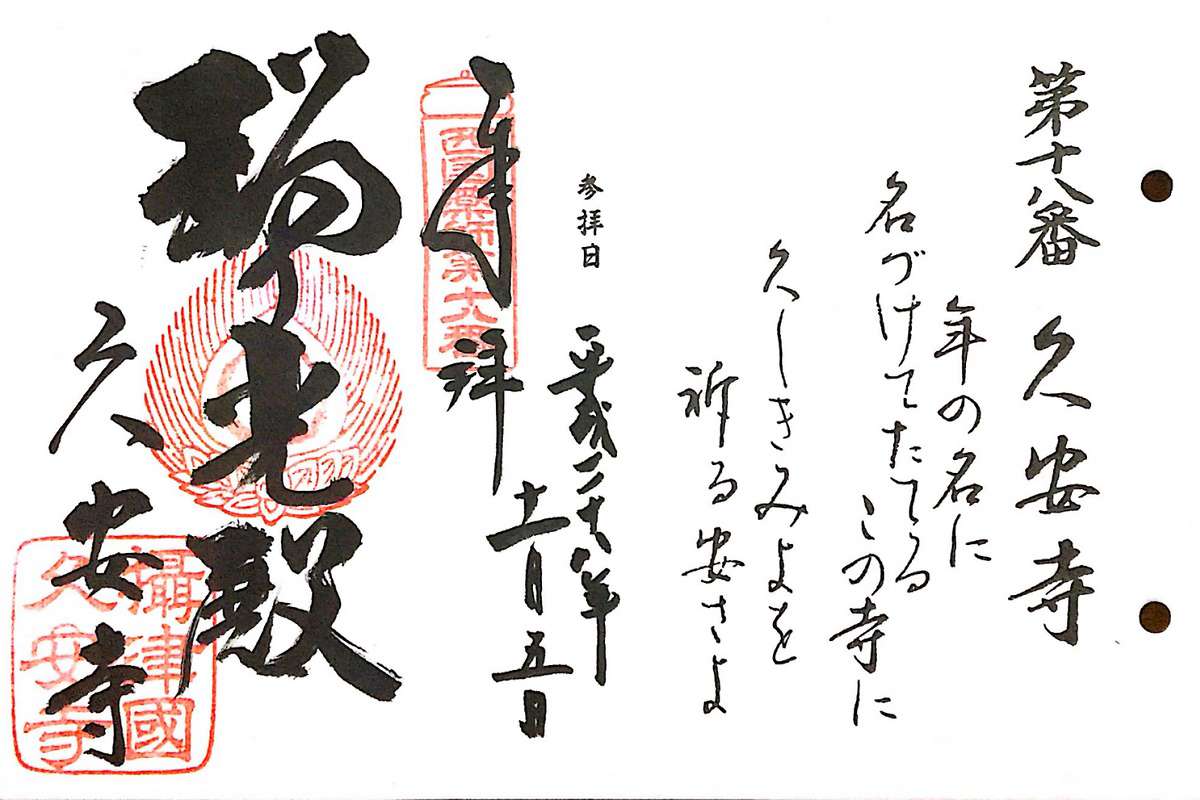 第十八番 久安寺
年の名に
名づけてたてる
この寺に
久しきみよを
祈る安さよ
参拝日
平成二十八年
十一月五日
奉拝
西国薬師第十八番
瑞光殿
久安寺
攝津國
久安寺